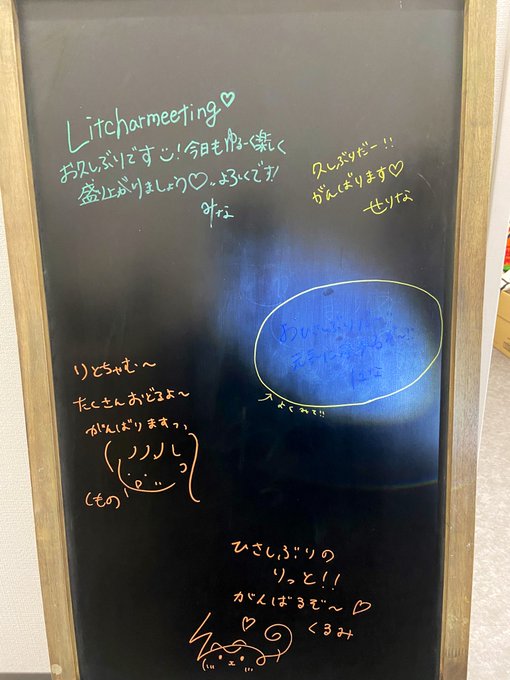 Litcharmeeting♡
お久しぶりです!今日もゆるーく楽しく
盛り上がりましょう♡よろしくです!
みな
久しぶりだー!!
がんばります♡
せりな
おひさしぶりだ
元気に
はな
↑よくみて!!
りとちゃむ〜
たくさんおどるよ〜
がんばりますっっ
くもの
ひさしぶりの
りっと!!
がんばるぞ〜♡
くるみ